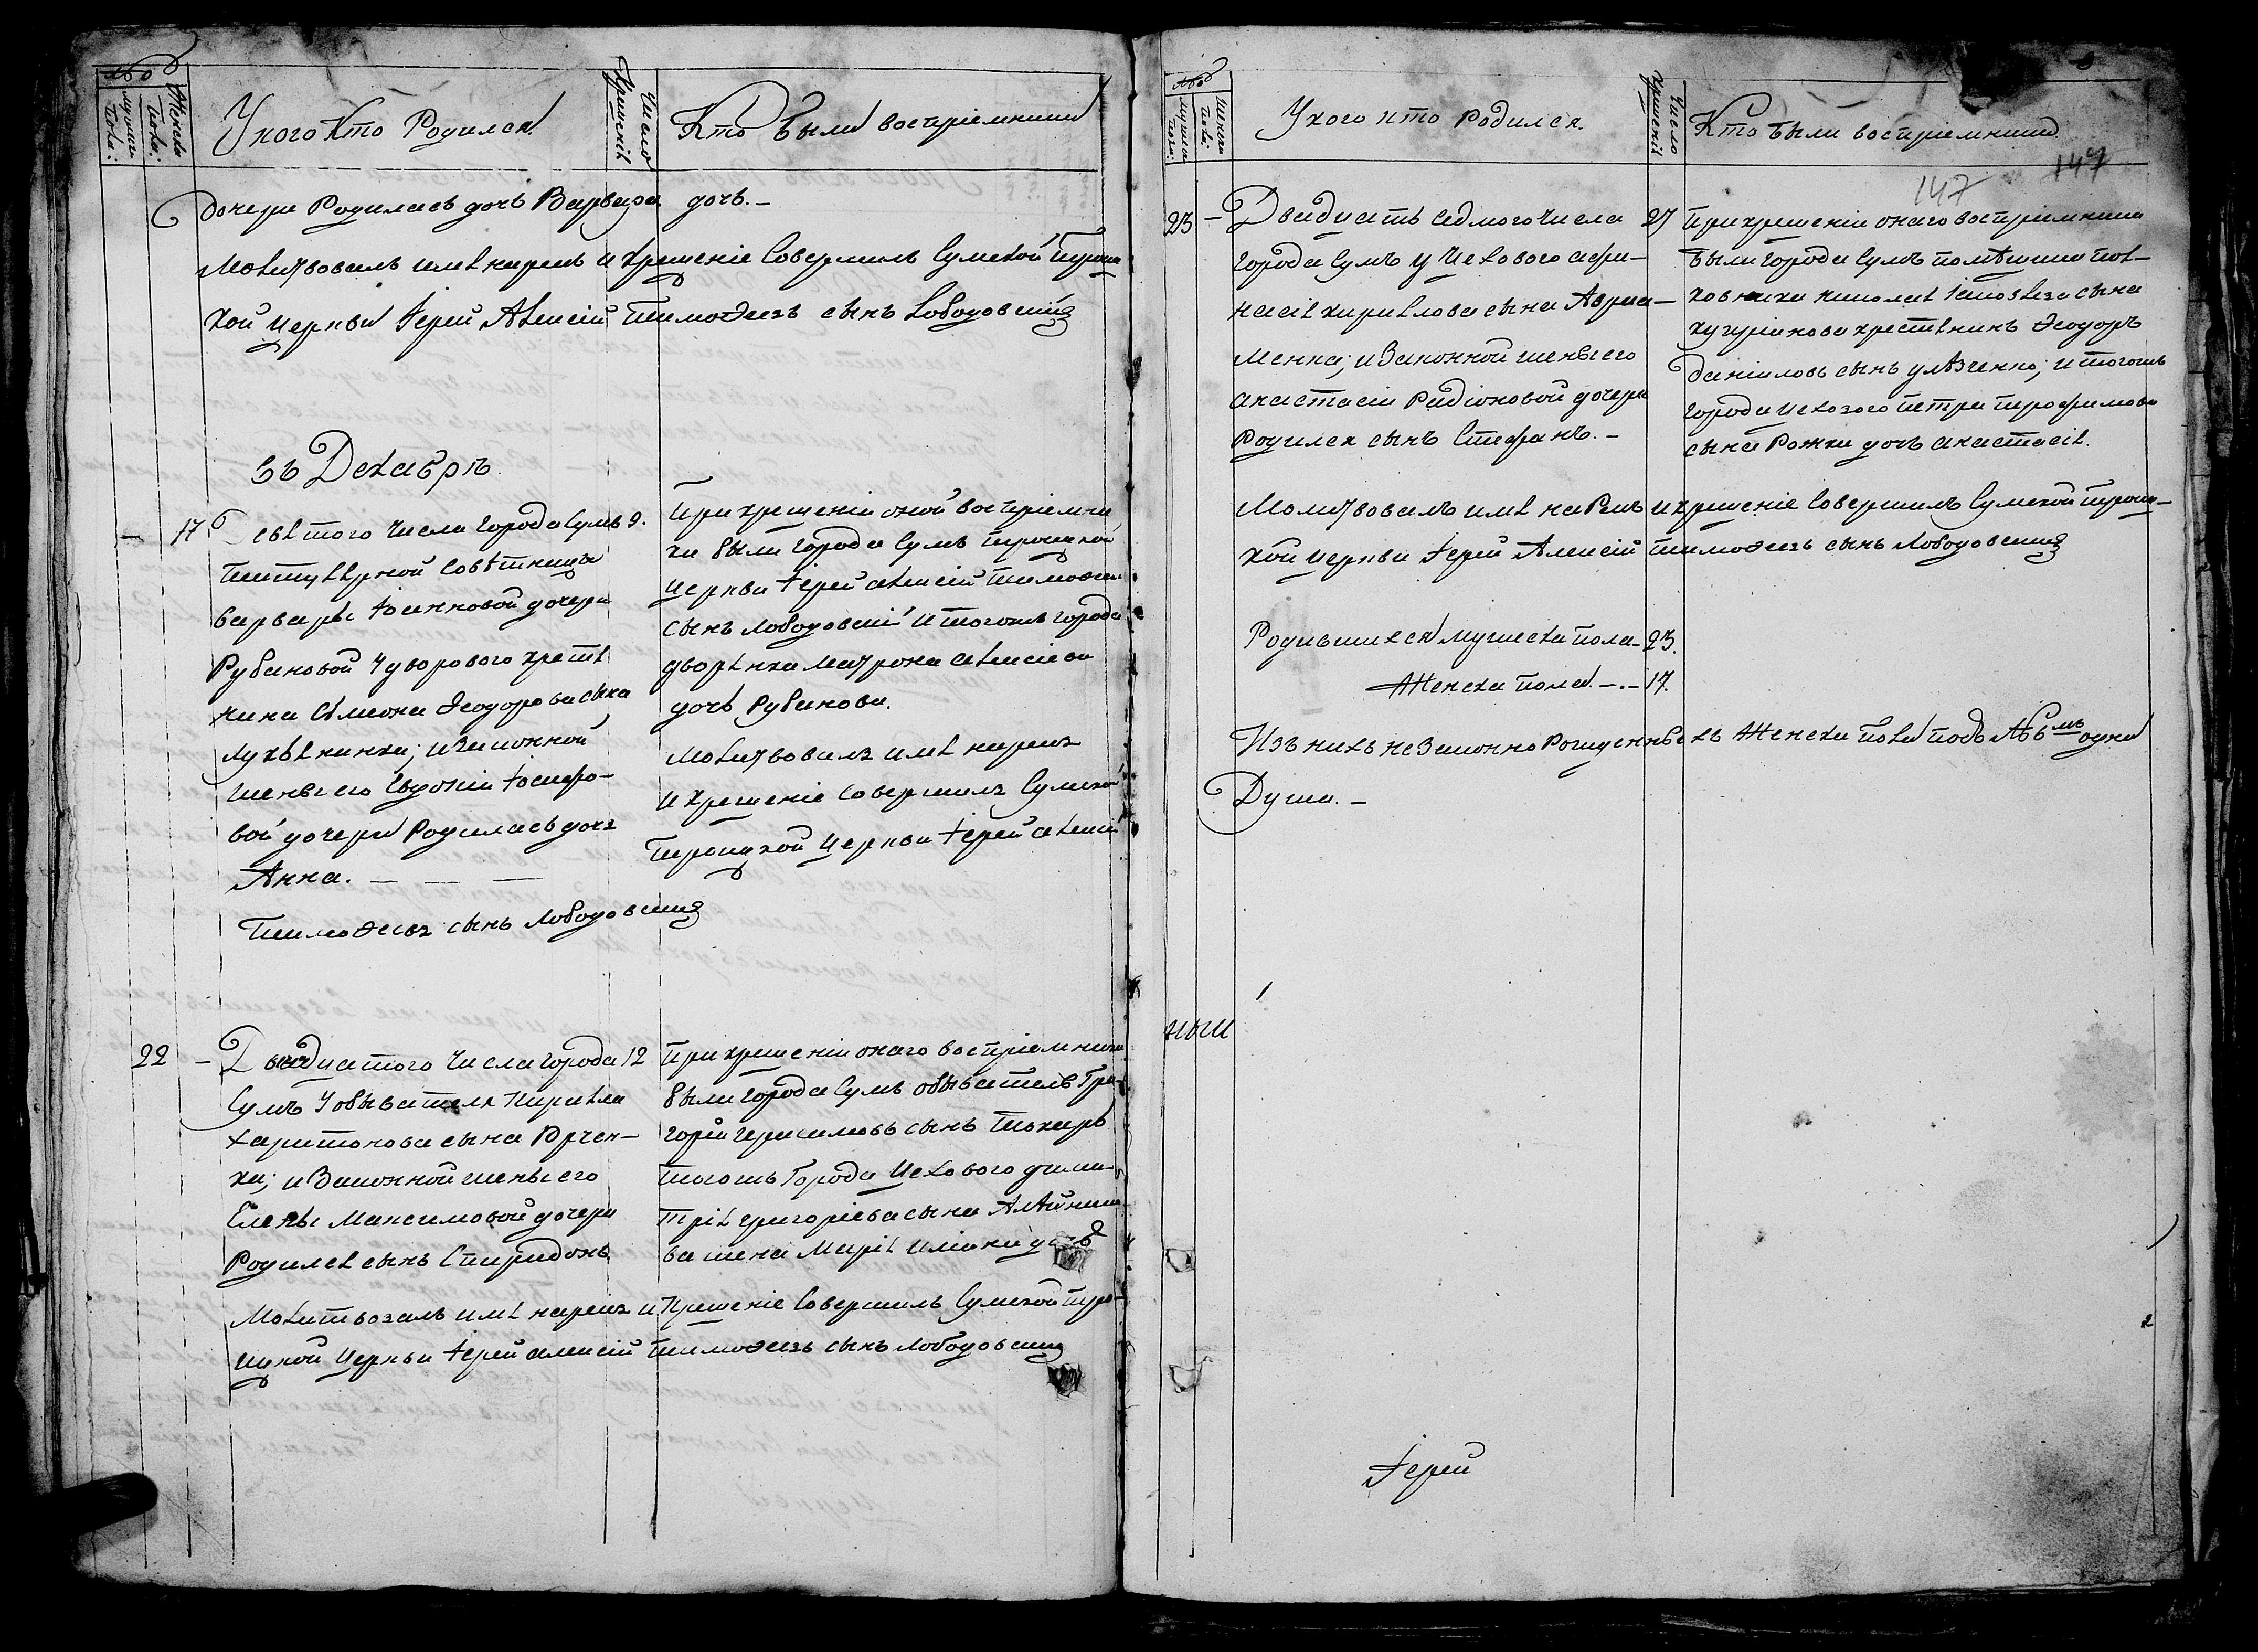 №
Мужеск Пола:
Женска Пола:
У кого Кто Родился
Число Крещенія
Кто были воспріемники
дочери Родилась дочь Варвара
дочь. —
Молитвовалъ имя нарекъ и крещеніе Совершилъ Сумской Троиц
кой церкви Іерей Алексій Тимоѳеевъ сынъ Лободовскій
въ Декабрѣ
— 17 Девятого числа города Сумъ 9.
Титулярной Совѣтницы
Варвары Іоанновой дочери
Рубановой У дворового крестя
нина Сѵмеона Ѳеодорова сына
Лукьянинки; и Законной
жены его Евдокіи Іосифо-
вой дочери Родилась дочь
Анна. — — —
При крещеніи оной воспріемни
ки были города Сумъ Троицкой
церкви Іерей Алексій Тимоѳеевъ
сынъ Лободовскій и тогожъ города
дворянка Матрона Алексіева
дочь Рубанова.
Молитвовалъ имя нарекъ
и крещеніе Совершилъ Сумской
Троицкой церкви Іерей Алексій
Тимоѳеевъ сынъ Лободовскій
22 — Двадцатого числа города 12
Сумъ У обывателя Кирилла
Харитонова сына Юрчен-
ки; и Законной жены его
Елены Максимовой дочери
Родился сынъ Спиридонъ
При крещеніи онаго воспріемники
были города Сумъ обыватель Гри-
горій Герасимовъ сынъ Токарь
тогожъ Города Цехового Дими-
трія Григоріева сына Алейнико
ва жена Марія Иліина дочь
Молитвовалъ имя нарекъ и Крещеніе Совершилъ Сумской Тро-
ицкой Церкви Іерей Алексій Тимоѳеевъ сынъ Лободовскій
№
Мужеска Пола:
Женска Пола:
У кого кто Родился.
Число Крещенія
Кто были воспріемники
147
147
23 — Двадцать седмого числа 27
города Сумъ у Цехового Афа-
насія Кирилова сына Авра-
менка; и Законной жены его
Анастасіи Радіоновой дочери
Родился сынъ Стефанъ. —
При крещеніи онаго воспріемники
были города Сумъ помѣщика пол-
ковника Николая сына
крестянинъ Ѳеодоръ
Даніиловъ сынъ; и тогожъ
города Цехового Петра Трофимова
сына Рожка дочь Анастасія.
Молитвовалъ имя нарекъ и крещеніе Совершилъ Сумской Троиц-
кой церкви Іерей Алексій Тимоѳеевъ сынъ Лободовскій
Родившихся мужеска пола — 23.
Женска пола. —.— 17.
Изъ нихъ незаконно Рожденныхъ Женска Пола подъ № 6мъ одна
Душа. —
Іерей